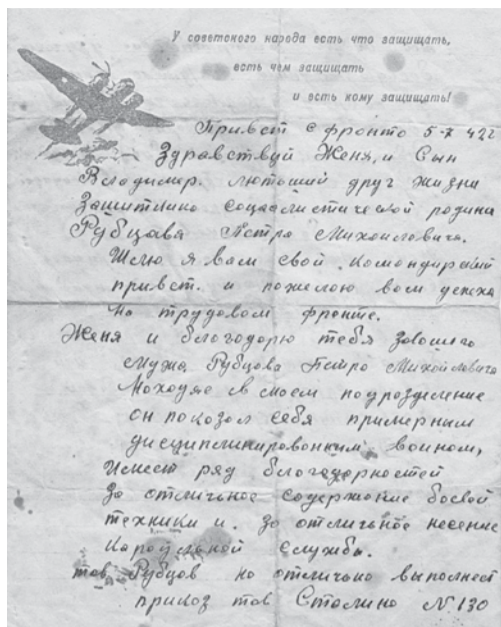 У советского народа есть что защищать,
есть чем защищать
и есть кому защищать!
Привет с фронто 5-X 42г
Здравствуй Женя, и Сын
Владимер. лютший друг жизни
Защитнико социалистической родина
Рубцава Пстра Михоиловича.
Желю я вам свой Командирский
привет. и пожелою вам успеха
на трудовом фронте.
Женя и благодорю тебя за вошего
мужа Рубцова Петро Михойловича
Находяс в моем подрозделение
он показол себя примерним
дисциплинировонним воином,
Имеет ряд благодорностей
За отличьное содержание боевой
техники и. за отличьное несение
Кароульной службы.
тов Рубцов но отличьно выполнеет
прикоз тов Столино N 130